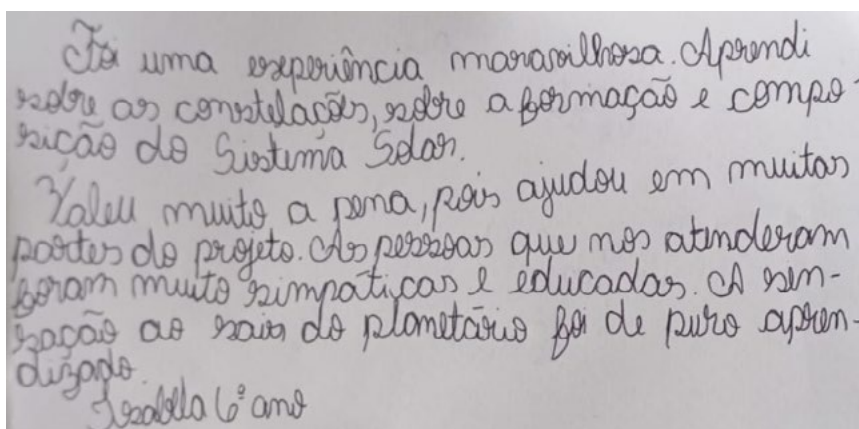 Foi uma experiência maravilhosa. Aprendi
sobre as constelações, sobre a formação e compo-
sição do Sistema Solar.
Valeu muito a pena, pois ajudou em muitas
partes do projeto. As pessoas que nos atenderam
foram muito simpáticas e educadas. A sen-
sação ao sair do planetário foi de puro apren-
dizado.
Isabella 6º ano